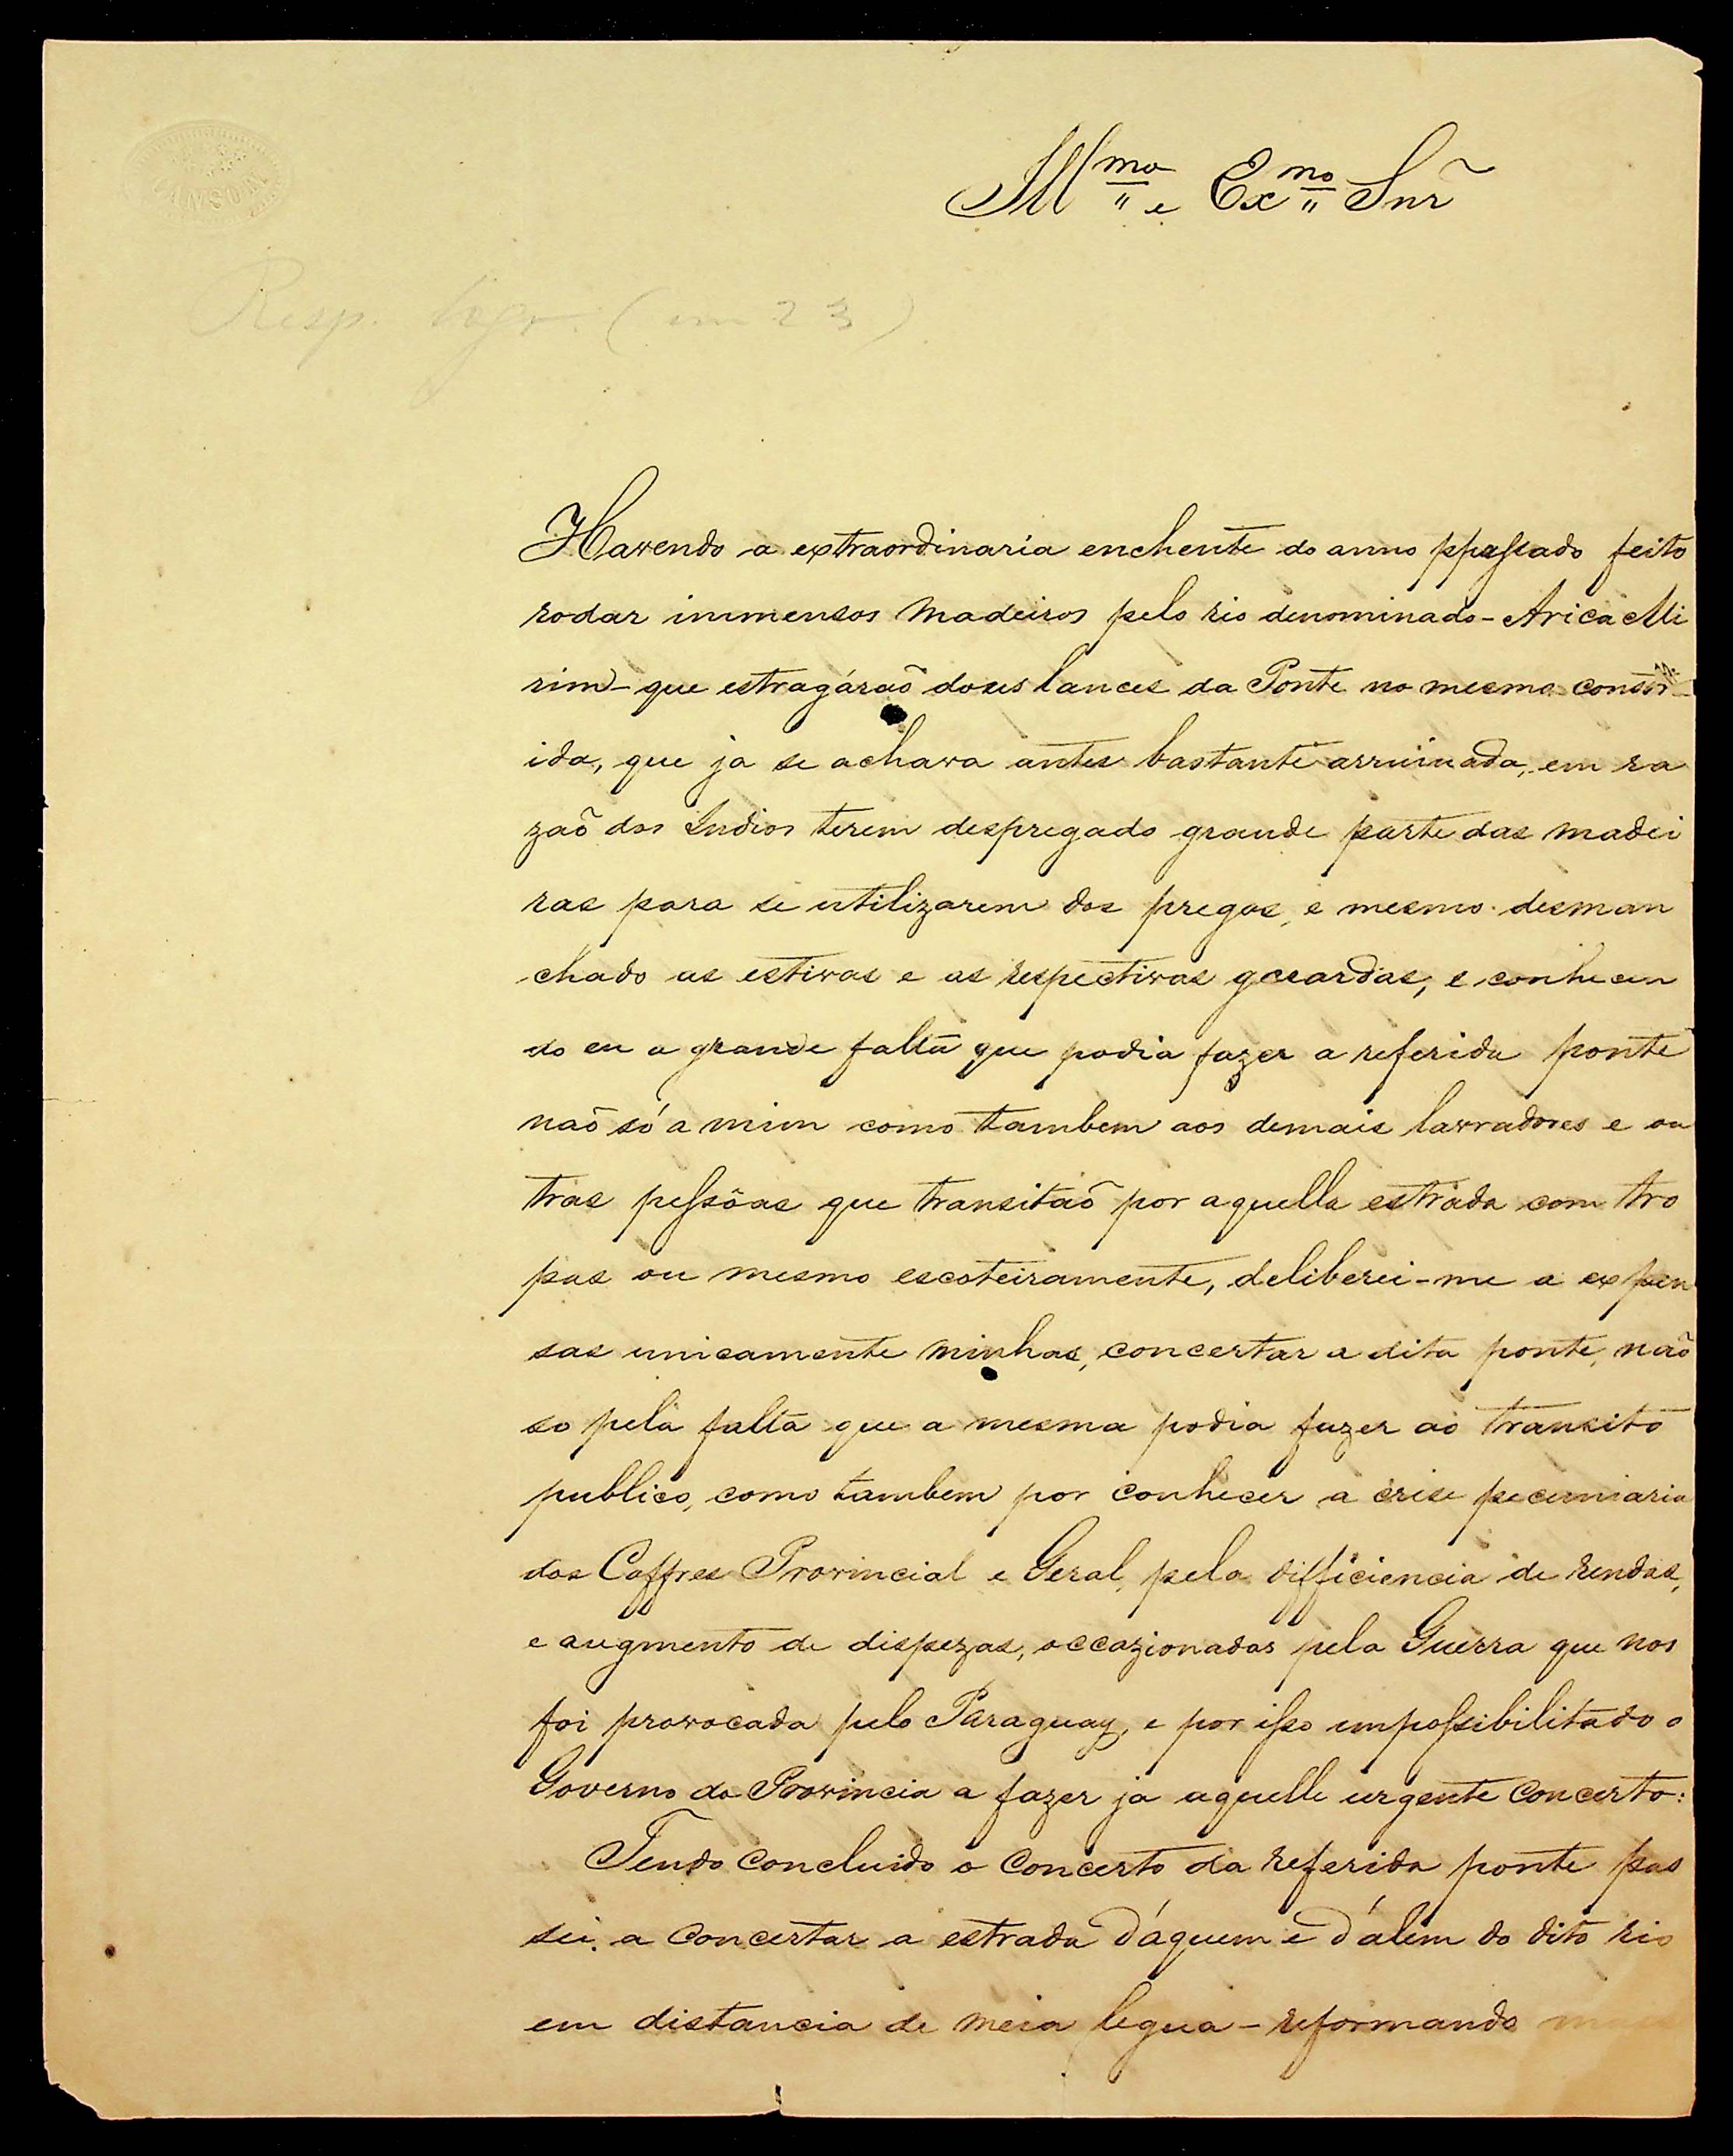 Illmo e Exmo Snr
Resp. (em 23)
Havendo a extraordinaria enchente do anno ppassado feito
rodar immensos madeiros pelo rio denominado - Aricá Mi
rim - que estragárão dous lances da Ponte no mesmo constr
ida, que ja se achava antes bastante arruinada, em ra
zaõ dos Indios terem despregado grande parte das madei
ras para se utilizarem dos pregos, e mesmo desman
chado as estivas e as respectivas guardas, e conhecen
do eu a grande falta que podia fazer a referida ponte
naõ só a mim como tambem aos demais lavradores e ou
tras pessôas que transitaõ por aquella estrada com tro
pas ou mesmo escoteiramente, deliberei-me a expen
sas unicamente minhas, concertar a dita ponte, naõ
so pela falta que a mesma podia fazer ao transito
publico, como tambem por conhecer a crise pecuniaria
dos Coffres Provincial e Geral, pela difficiencia de rendas,
e augmento de dispezas, occazionadas pela Guerra que nos
foi provocada pelo Paraguay, e por isso impossibilitado o
Governo da Provincia a fazer ja aquelle urgente concerto:
Tendo concluido o concerto da referida ponte pas
sei a concertar a estrada d'áquem e d'álem do dito rio
em distancia de meia legua - reformando